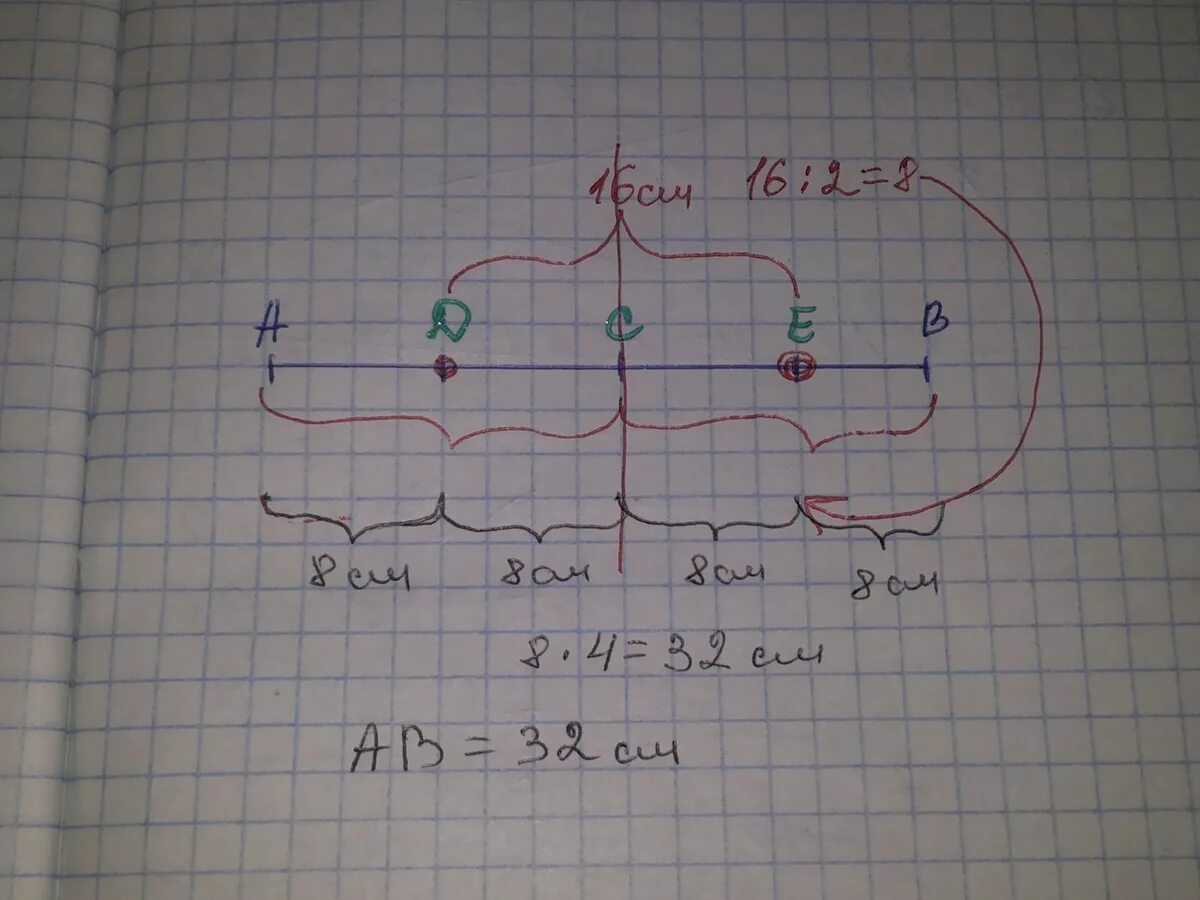 16см 16:2=8
A D C E B
8см 8см 8см 8см
8·4=32см
AB=32см